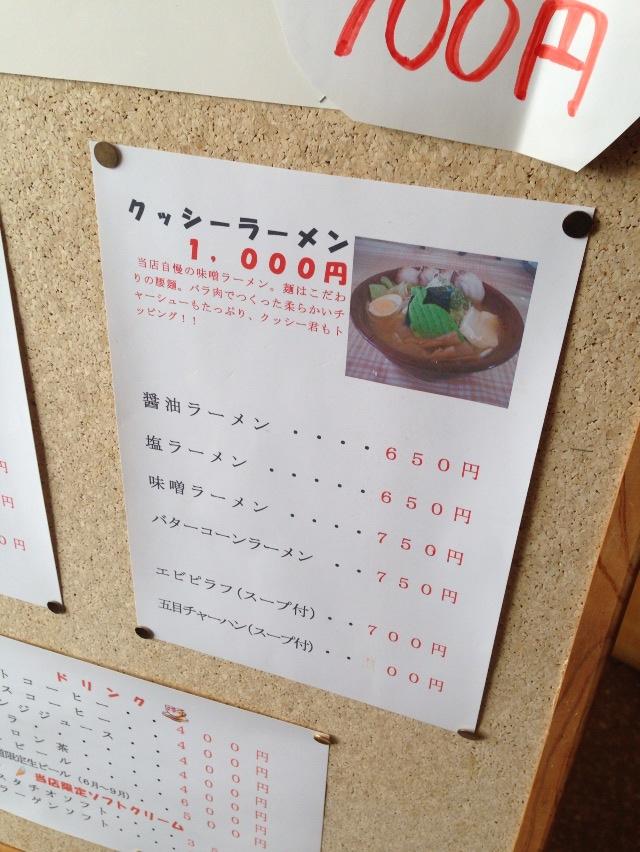 700円
クッシーラーメン
1,000円
当店自慢の味噌ラーメン。麺はこだわ
りの腰麺。バラ肉でつくった柔らかいチ
ャーシューもたっぷり、クッシー君もト
ッピング!!
醤油ラーメン ・・・・650円
塩ラーメン ・・・・・650円
味噌ラーメン ・・・・750円
バターコーンラーメン ・・750円
エビピラフ(スープ付) ・・700円
五目チャーハン(スープ付) ・・00円
円
円
0円
ドリンク
トコーヒー ・・400円
スコーヒー ・・400円
ンジジュース ・・400円
ラ ・・・・400円
ロン茶 ・・・・400円
ビール ・・・・600円
限定生ビール(6月~9月) ・・500円
当店限定ソフトクリーム
スタチオソフト ・・・・3
ラーゲンソフト ・・・・